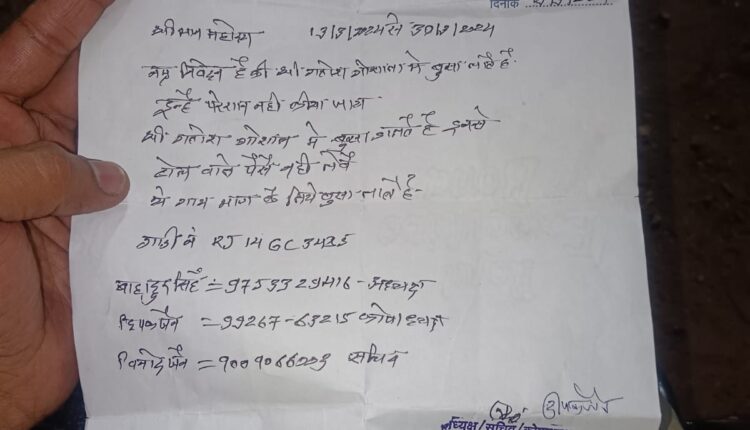 दिनांक
श्रीमान महोदय 13/3/2024 से 30/3/2024
नम्र निवेदन है की श्री गणेश गोशाला मे भुसा लाते है
इन्हे परेशान नही कीया जाय
श्री गणेश गोशाला मे भुसा लाते है इनसे
टोल वाले पैसे नही लेवे
ये गाय माता के लिये भुसा लाते है-
गाडी नं RJ 14 GC 3435
बाहादुरसिंह = 9753329416 - अध्यक्ष
दिपक जैन = 99267-63215 कोषाध्यक्ष
विनोद जैन = सचिव
अध्यक्ष/सचिव/